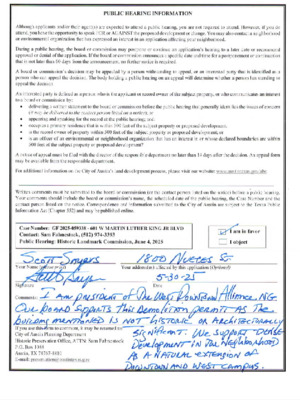 PUBLIC HEARING INFORMATION
Although applicants and/or their agent(s) are expected to attend a public hearing, you are not required to attend. However, if you do
attend, you have the opportunity to speak FOR or AGAINST the proposed development or change. You may also contact a neighborhood
or environmental organization that has expressed an interest in an application affecting your neighborhood.
During a public hearing, the board or commission may postpone or continue an application's hearing to a later date or recommend
approval or denial of the application. If the board or commission announces a specific date and time for a postponement or continuation
that is not later than 60 days from the announcement, no further notice is required.
A board or commission's decision may be appealed by a person with standing to appeal, or an interested party that is identified as a
person who can appeal the decision. The body holding a public hearing on an appeal will determine whether a person has standing to
appeal the decision.
An interested party is defined as a person who is the applicant or record owner of the subject property, or who communicates an interest to
a board or commission by:
• delivering a written statement to the board or commission before the public hearing that generally identifies the issues of concern
(it may be delivered to the contact person listed on a notice); or
• appearing and speaking for the record at the public hearing; and:
• occupies a primary residence that is within 500 feet of the subject property or proposed development;
• is the record owner of property within 500 feet of the subject property or proposed development; or
• is an officer of an environmental or neighborhood organization that has an interest in or whose declared boundaries are within
500 feet of the subject property or proposed development.
A notice of appeal must be filed with the director of the responsible department no later than 14 days after the decision. An appeal form
may be available from the responsible department.
For additional information on the City of Austin's land development process, please visit our website
Written comments must be submitted to the board or commission (or the contact person listed on the notice) before a public hearing.
Your comments should include the board or commission's name, the scheduled date of the public hearing, the Case Number and the
contact person listed on the notice. Correspondence and information submitted to the City of Austin are subject to the Texas Public
Information Act (Chapter 552) and may be published online.
Case Number: - 601 W MARTIN LUTHER KING JR BLVD
Contact: Sam Fahnestock,
Public Hearing: Historic Landmark Commission, June 4, 2025
I am in favor
I object
Scott Sayers
1800 Nueces St
Your Name (please print)
Your address(es) affected by this application (Optional)
5-30-25
Signature
Date
Comments: I am president of The West Downtown Alliance, NG
Our board supports this demolition permit as the
building mentioned is not historic or architecturally
If you use this form to comment, it may be returned to:
significant. We support dense
City of Austin Planning Department
Historic Preservation Office, ATTN: Sam Fahnestock
development in the neighborhood
P.O. Box 1088
as a natural extension of
Austin, TX 78767-8810
downtown and West Campus.